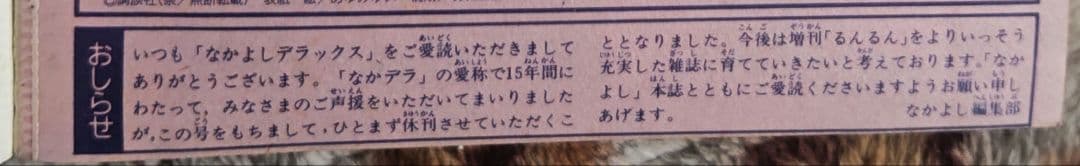 おしらせ
いつも「なかよしデラックス」をご愛読いただきまして
ありがとうございます。「なかデラ」の愛称で15年間に
わたって、みなさまのご声援をいただいてまいりました
が、この号をもちまして、ひとまず休刊させていただくこ
ととなりました。今後は増刊「るんるん」をよりいっそう
充実した雑誌に育てていきたいと考えております。「なか
よし」本誌とともにご愛読くださいますようお願い申し
あげます。
なかよし編集部